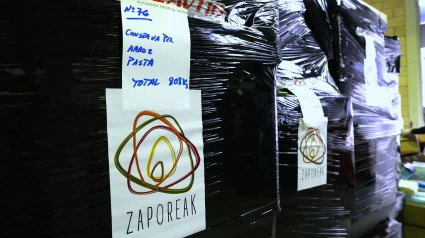 Nº 76
CONSERVA PEZ
ARROZ
PASTA
TOTAL 808 Kg
ZAPOREAK
ZAPOREAK